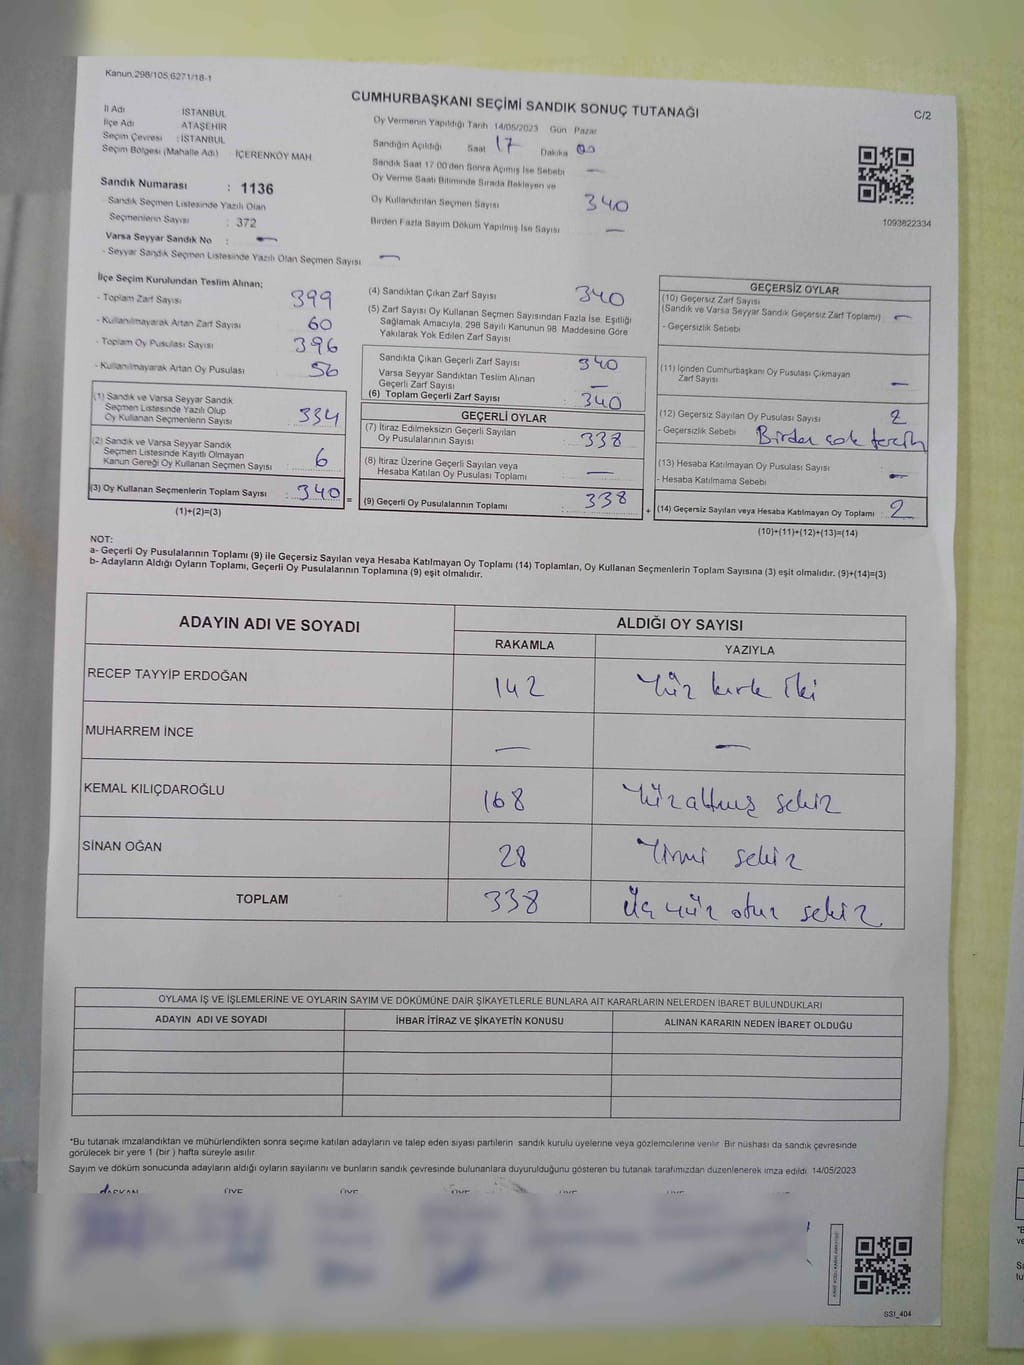 Kanun.298/105,6271/18-1
CUMHURBAŞKANI SEÇİMİ SANDIK SONUÇ TUTANAĞI
C/2
İl Adı İSTANBUL
İlçe Adı ATAŞEHİR
Seçim Çevresi : İSTANBUL
Seçim Bölgesi (Mahalle Adı) : İÇERENKÖY MAH
Sandık Numarası : 1136
- Sandık Seçmen Listesinde Yazılı Olan
Seçmenlerin Sayısı : 372
Varsa Seyyar Sandık No : —
- Seyyar Sandık Seçmen Listesinde Yazılı Olan Seçmen Sayısı —
Oy Vermenin Yapıldığı Tarih 14/05/2023 Gün Pazar
Sandığın Açıldığı Saat 17 Dakika 00
Sandık Saat 17:00'den Sonra Açılmış İse Sebebi —
Oy Verme Saati Bitiminde Sırada Bekleyen ve
Oy Kullandırılan Seçmen Sayısı 340
Birden Fazla Sayım Döküm Yapılmış İse Sayısı —
1093822334
İlçe Seçim Kurulundan Teslim Alınan;
- Toplam Zarf Sayısı 399
- Kullanılmayarak Artan Zarf Sayısı 60
- Toplam Oy Pusulası Sayısı 396
- Kullanılmayarak Artan Oy Pusulası 56
(1) Sandık ve Varsa Seyyar Sandık
Seçmen Listesinde Yazılı Olup
Oy Kullanan Seçmenlerin Sayısı : 334
(2) Sandık ve Varsa Seyyar Sandık
Seçmen Listesinde Kayıtlı Olmayan
Kanun Gereği Oy Kullanan Seçmen Sayısı : 6
(3) Oy Kullanan Seçmenlerin Toplam Sayısı : 340 =
(1)+(2)=(3)
(4) Sandıktan Çıkan Zarf Sayısı 340
(5) Zarf Sayısı Oy Kullanan Seçmen Sayısından Fazla İse, Eşitliği
Sağlamak Amacıyla, 298 Sayılı Kanunun 98. Maddesine Göre
Yakılarak Yok Edilen Zarf Sayısı
Sandıkta Çıkan Geçerli Zarf Sayısı : 340
Varsa Seyyar Sandıktan Teslim Alınan
Geçerli Zarf Sayısı : —
(6) Toplam Geçerli Zarf Sayısı : 340
GEÇERLİ OYLAR
(7) İtiraz Edilmeksizin Geçerli Sayılan
Oy Pusulalarının Sayısı : 338
(8) İtiraz Üzerine Geçerli Sayılan veya
Hesaba Katılan Oy Pusulası Toplamı : —
(9) Geçerli Oy Pusulalarının Toplamı : 338 +
GEÇERSİZ OYLAR
(10) Geçersiz Zarf Sayısı
(Sandık ve Varsa Seyyar Sandık Geçersiz Zarf Toplamı) —
- Geçersizlik Sebebi
(11) İçinden Cumhurbaşkanı Oy Pusulası Çıkmayan
Zarf Sayısı —
(12) Geçersiz Sayılan Oy Pusulası Sayısı 2
- Geçersizlik Sebebi Birden çok tercih
(13) Hesaba Katılmayan Oy Pusulası Sayısı —
- Hesaba Katılmama Sebebi
(14) Geçersiz Sayılan veya Hesaba Katılmayan Oy Toplamı : 2
(10)+(11)+(12)+(13)=(14)
NOT:
a- Geçerli Oy Pusulalarının Toplamı (9) ile Geçersiz Sayılan veya Hesaba Katılmayan Oy Toplamı (14) Toplamları, Oy Kullanan Seçmenlerin Toplam Sayısına (3) eşit olmalıdır. (9)+(14)=(3)
b- Adayların Aldığı Oyların Toplamı, Geçerli Oy Pusulalarının Toplamına (9) eşit olmalıdır.
ADAYIN ADI VE SOYADI ALDIĞI OY SAYISI
RAKAMLA YAZIYLA
RECEP TAYYİP ERDOĞAN 142 Yüz kırk iki
MUHARREM İNCE — —
KEMAL KILIÇDAROĞLU 168 Yüz altmış sekiz
SİNAN OĞAN 28 Yirmi sekiz
TOPLAM 338 Üç yüz otuz sekiz
OYLAMA İŞ VE İŞLEMLERİNE VE OYLARIN SAYIM VE DÖKÜMÜNE DAİR ŞİKAYETLERLE BUNLARA AİT KARARLARIN NELERDEN İBARET BULUNDUKLARI
ADAYIN ADI VE SOYADI İHBAR İTİRAZ VE ŞİKAYETİN KONUSU ALINAN KARARIN NEDEN İBARET OLDUĞU
*Bu tutanak imzalandıktan ve mühürlendikten sonra seçime katılan adayların ve talep eden siyasi partilerin sandık kurulu üyelerine veya gözlemcilerine verilir. Bir nüshası da sandık çevresinde
görülecek bir yere 1 (bir) hafta süreyle asılır.
Sayım ve döküm sonucunda adayların aldığı oyların sayılarını ve bunların sandık çevresinde bulunanlara duyurulduğunu gösteren bu tutanak tarafımızdan düzenlenerek imza edildi. 14/05/2023
BAŞKAN ÜYE ÜYE ÜYE ÜYE ÜYE
SSI_404